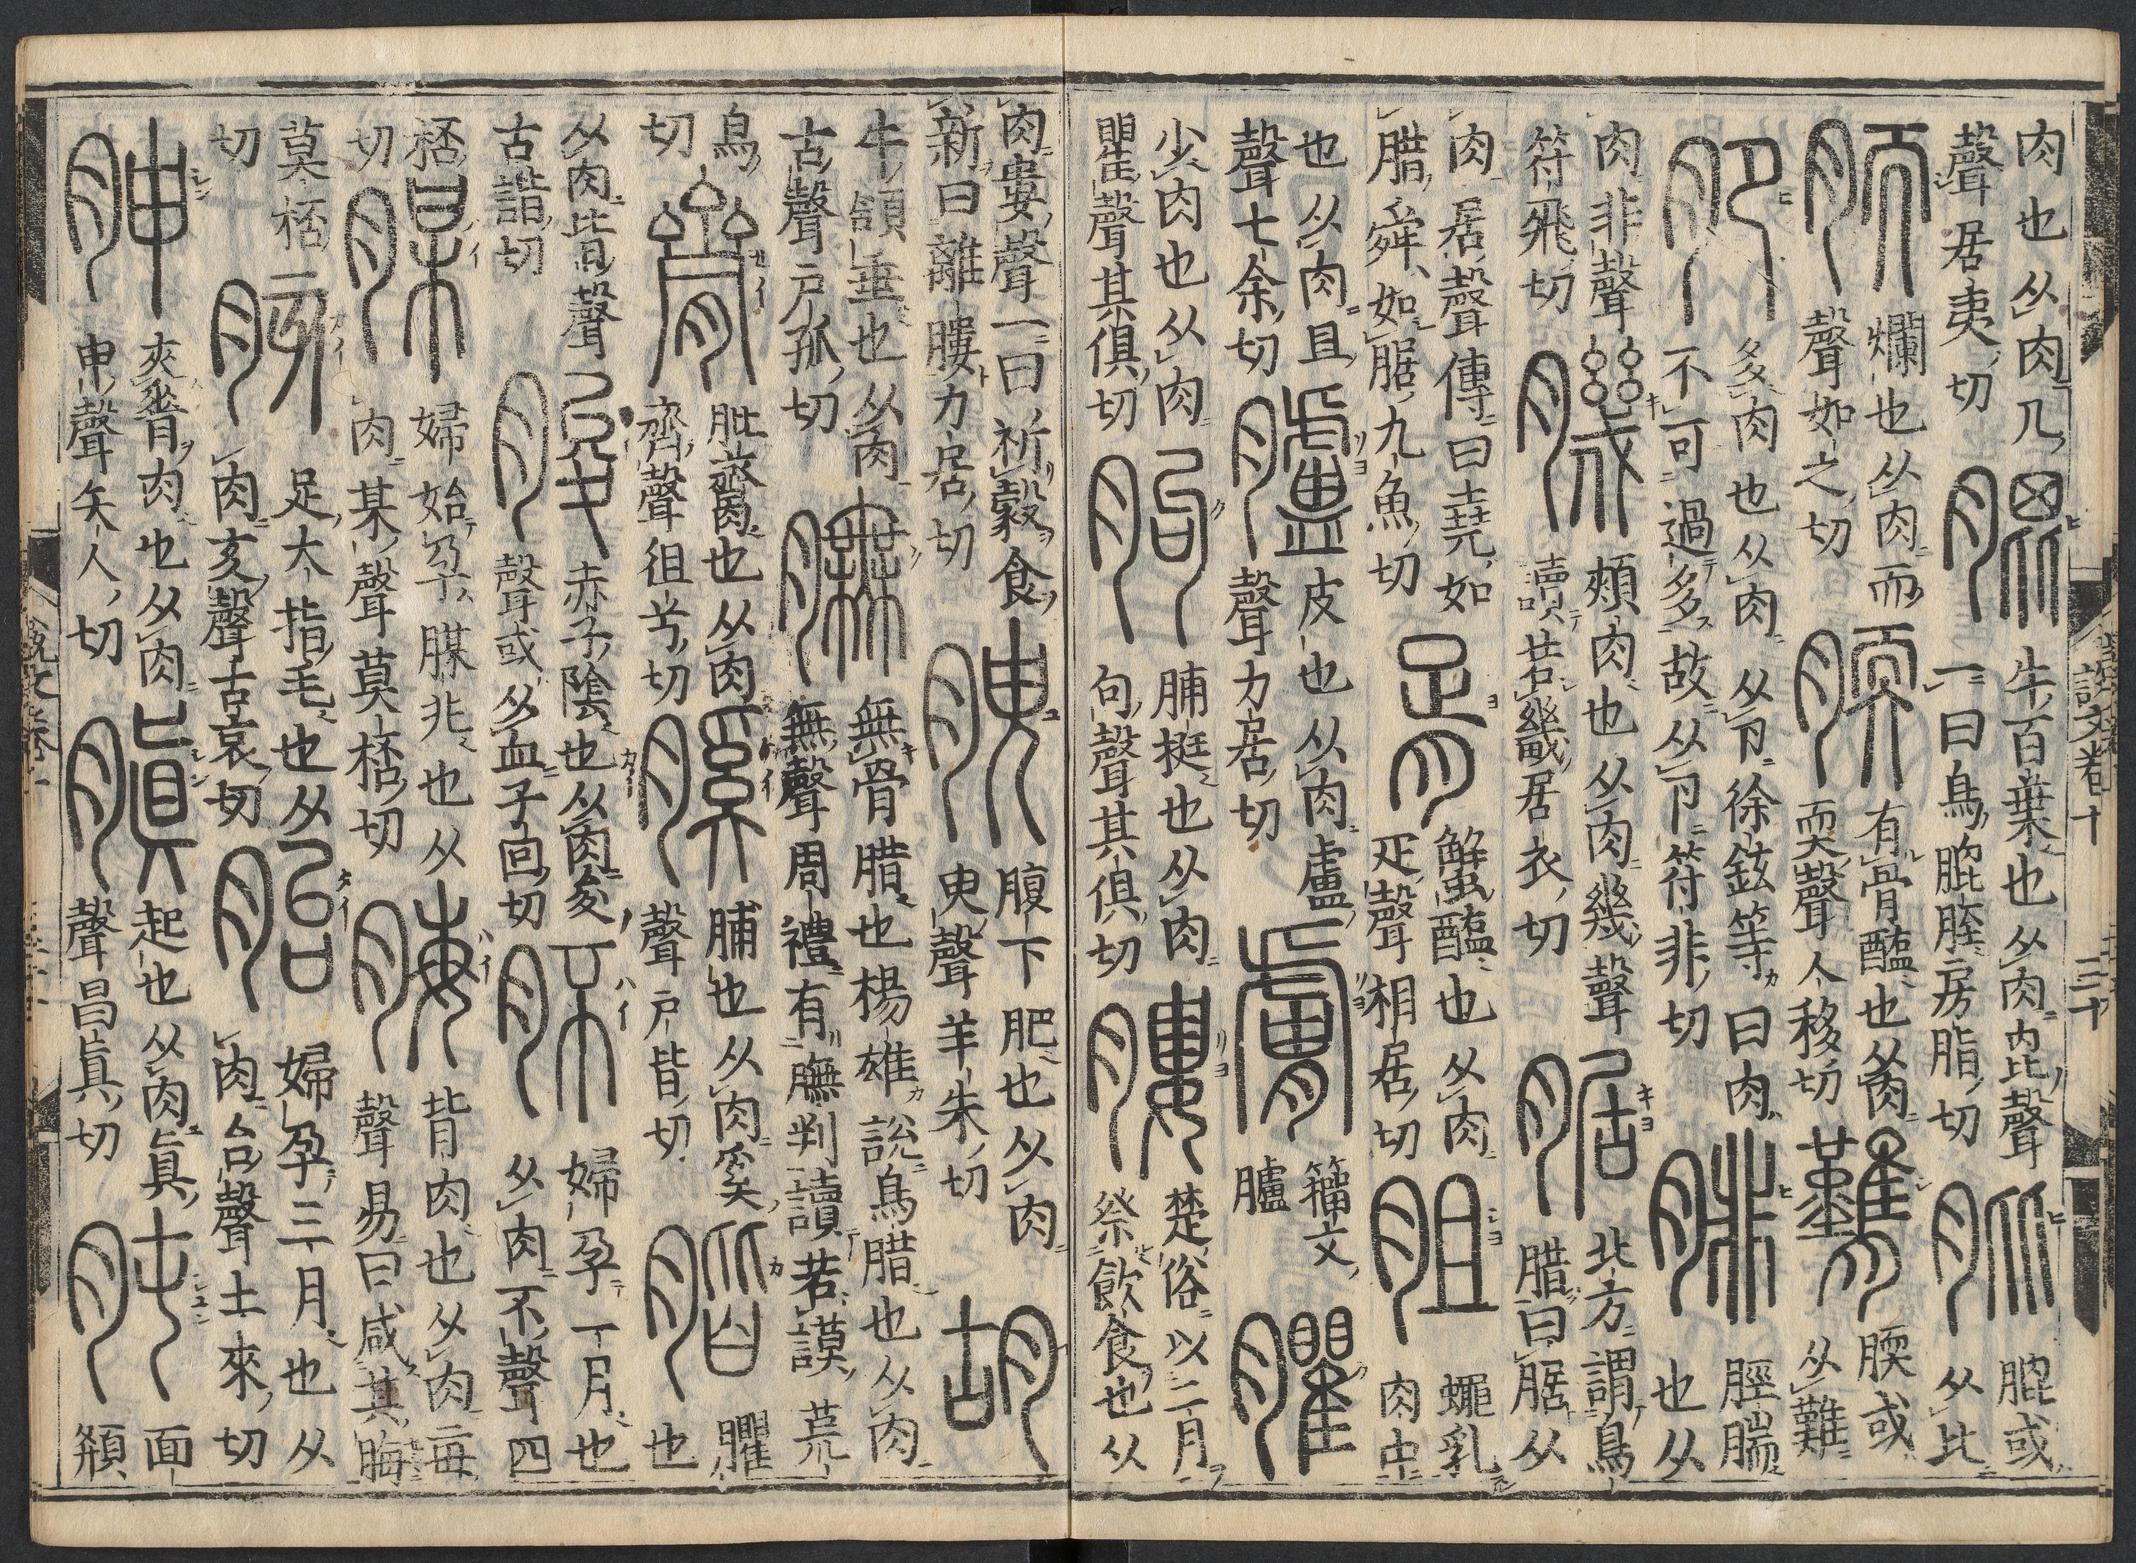 肉也从肉几
聲居夷切
膍
牛百葉也从肉毘聲
一曰鳥膍胵房脂切
肶
膍或
从比
胹
爛也从肉而
聲如之切
腝
有骨醢也从肉
耎聲人移切
臡
腝或
从難
肥
多肉也从肉从卪徐鉉等曰肉
不可過多故从卪符非切
腓
脛腨
也从
肉非聲
符飛切
頰肉也从肉幾聲
讀若畿居衣切
腒
北方謂鳥
腊曰腒从
肉居聲傳曰堯如
腊舜如腒九魚切
胥
蟹醢也从肉
疋聲相居切
胆
蠅乳
肉中
也从肉且
聲七余切
臚
皮也从肉盧
聲力居切
膚
籒文
臚
臞
少肉也从肉
瞿聲其俱切
胊
脯挺也从肉
句聲其俱切
膢
楚俗以二月
祭飲食也从
肉婁聲一曰祈穀食
新曰離膢力居切
腴
腹下肥也从肉
臾聲羊朱切
胡
牛頷垂也从肉
古聲戶孤切
膴
無骨腊也楊雄說鳥腊也从肉
無聲周禮有膴判讀若謨荒
鳥
切
臍
肶齎也从肉
齊聲徂兮切
膎
脯也从肉奚
聲戶皆切
臞
也
从肉皆聲
古諧切
朘
赤子陰也从肉夋
聲或从血子回切
肧
婦孕一月也
从肉不聲四
桮
切
腜
婦始孕腜兆也从
肉某聲莫桮切
脢
背肉也从肉每
聲易曰咸其脢
莫桮
切
胲
足大指毛也从
肉亥聲古哀切
胎
婦孕三月也从
肉台聲土來切
胂
夾脊肉也从肉
申聲矢人切
䐜
起也从肉眞
聲昌眞切
肫
面
頯
説文卷十
三十